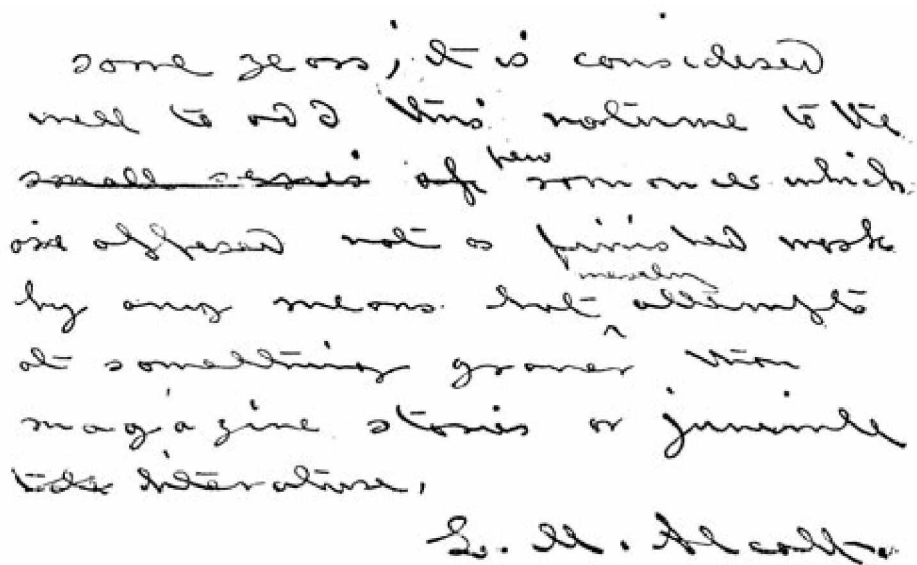 some years; it is considered
well to add this volume to the
small series of few romances which
are offered not as finished work
by any means but merely attempts
at something graver than
magazine stories or juvenile
literature.
L. M. Alcott.